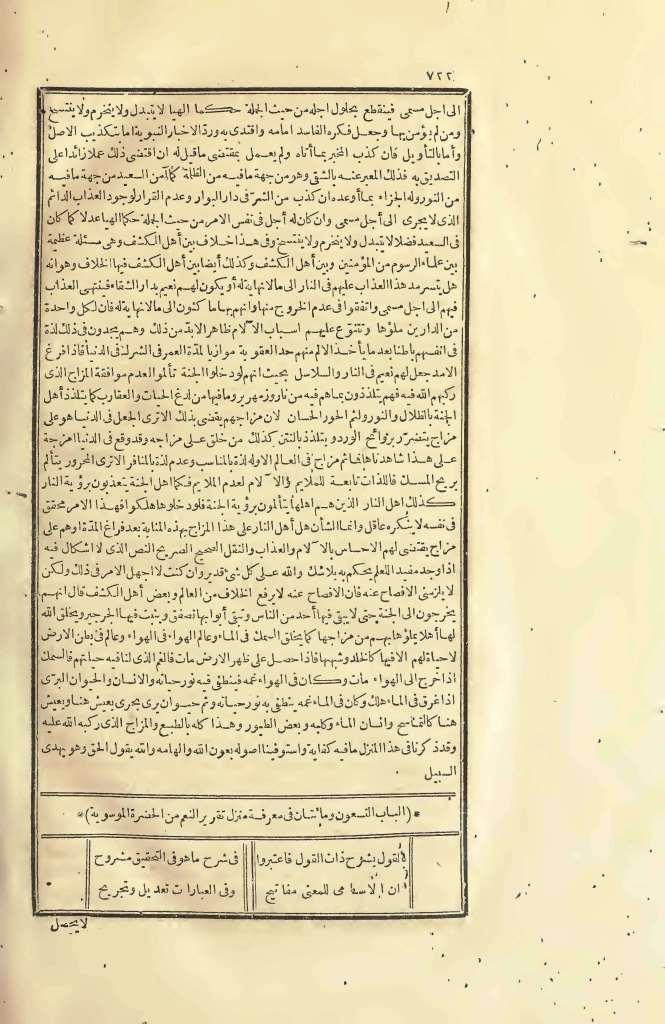 ٧٢٢
الى اجل مسمى فينقطع بحلول اجله من حيث الجملة حكما الهيا لا يتبدل ولا ينخرم ولا ينتسخ
ومن لم يؤمن بها وجعل فكره الفاسد امامه واقتدى به ورد الاخبار النبوية اما بتكذيب الاصل
وأما بالتأويل فان كذب المخبر بما أتاه ولم يعمل بمقتضى ما قيل له ان اقتضى ذلك عملا زائدا على
التصديق به فذلك المعبر عنه بالشقى وهو من جهة ما فيه من الظلمة كما آمن السعيد من جهة ما فيه
من النور وله الجزاء بما أوعده ان كذب من الشر فى دار البوار وعدم القرار لوجود العذاب الدائم
الذى لا يجرى الى أجل مسمى وان كان له أجل فى نفس الامر من حيث الجملة حكما الهيا عدلا كما كان
فى السعيد فضلا لا يتبدل ولا ينخرم ولا ينتسخ وفى هذا خلاف بين أهل الكشف وهى مسئلة عظيمة
بين علماء الرسوم من المؤمنين وبين أهل الكشف وكذلك أيضا بين أهل الكشف فيها الخلاف وهو انه
هل يتسرمد هذا العذاب عليهم فى النار الى ما لا نهاية له أو يكون لهم نعيم بدار الشقاء فينتهى العذاب
فيهم الى اجل مسمى واتفقوا فى عدم الخروج منها وانهم بها ماكثون الى ما لا نهاية له فان لكل واحدة
من الدارين ملؤها وتتنوع عليهم اسباب الآلام ظاهر الا بد من ذلك وهم يجدون فى ذلك لذة
فى انفسهم باطنا بعد ما يأخذ الالم منهم حد العقوبة موازيا لمدة العمر فى الشرك فى الدنيا فاذا فرغ
الامد جعل لهم نعيم فى النار والسلاسل بحيث انهم لو دخلوا الجنة تألموا لعدم موافقة المزاج الذى
ركبهم الله فيه فهم يتلذذون بما هم فيه من نار وزمهرير وما فيها من لدغ الحيات والعقارب كما يتلذذ أهل
الجنة بالظلال والنور ولثم الحور الحسان لان مزاجهم يقضى بذلك الا ترى الجعل فى الدنيا هو على
مزاج يتضرر بروائح الورد ويتلذذ بالنتن كذلك من خلق على مزاجه وقد وقع فى الدنيا امزجة
على هذا شاهدناها فما ثم مزاج فى العالم الا وله لذة بالمناسب وعدم لذة بالمنافر الا ترى المحرور يتألم
بريح المسك فاللذات تابعة للملايم والآلام لعدم الملايم فكما اهل الجنة يتعذبون برؤية النار
كذلك اهل النار الذين هم اهلها يتألمون برؤية الجنة فلو دخلوها هلكوا فهذا الامر محقق
فى نفسه لا ينكره عاقل وانما الشأن هل أهل النار على هذا المزاج بهذه المثابة بعد فراغ المدة أو هم على
مزاج يقتضى لهم الاحساس بالآلام والعذاب والنقل الصحيح الصريح النص الذى لا اشكال فيه
اذا وجد مفيد اللعلم يحكم به بلا شك والله على كل شئ قدير وان كنت لا اجهل الامر فى ذلك ولكن
لا يلزمنى الافصاح عنه فان الافصاح عنه لا يرفع الخلاف من العالم وبعض أهل الكشف قال انهم
يخرجون الى الجنة حتى لا يبقى فيها أحد من الناس وتبقى أبوابها تصفق وينبت فيها الجرجير ويخلق الله
لها أهلا يملؤها بهم من مزاجها كما يخلق السمك فى الماء وعالم الهواء فى الهواء وعالم فى بطن الارض
لا حياة لهم الا فيها كالخلد وشبهها فاذا حصل على ظهر الارض مات فالغم الذى لنا فيه حياتهم فالسمك
اذا خرج الى الهواء مات وكان فى الهواء غمه فينطفى فيه نور حياته والانسان والحيوان البرى
اذا غرق فى الماء هلك وكان فى الماء غمه ينطفى به نور حياته وثم حيوان برى بحرى يعيش هنا ويعيش
هنا كالتمساح وانسان الماء وكلبه وبعض الطيور وهذا كله بالطبع والمزاج الذى ركبه الله عليه
وقد ذكرنا فى هذا المنزل ما فيه كفاية واستوفينا اصوله بعون الله والهامه والله يقول الحق وهو يهدى
السبيل
*(الباب التسعون ومائتان فى معرفة منزل تقرير النعم من الحضرة الموسوية)*
القول يشرح ذات القول فاعتبروا فى شرح ما هو فى التحقيق مشروح
ان الاسامى للمعنى مفاتيح وفى العبارات تعديل وتجريح
لا يحصل